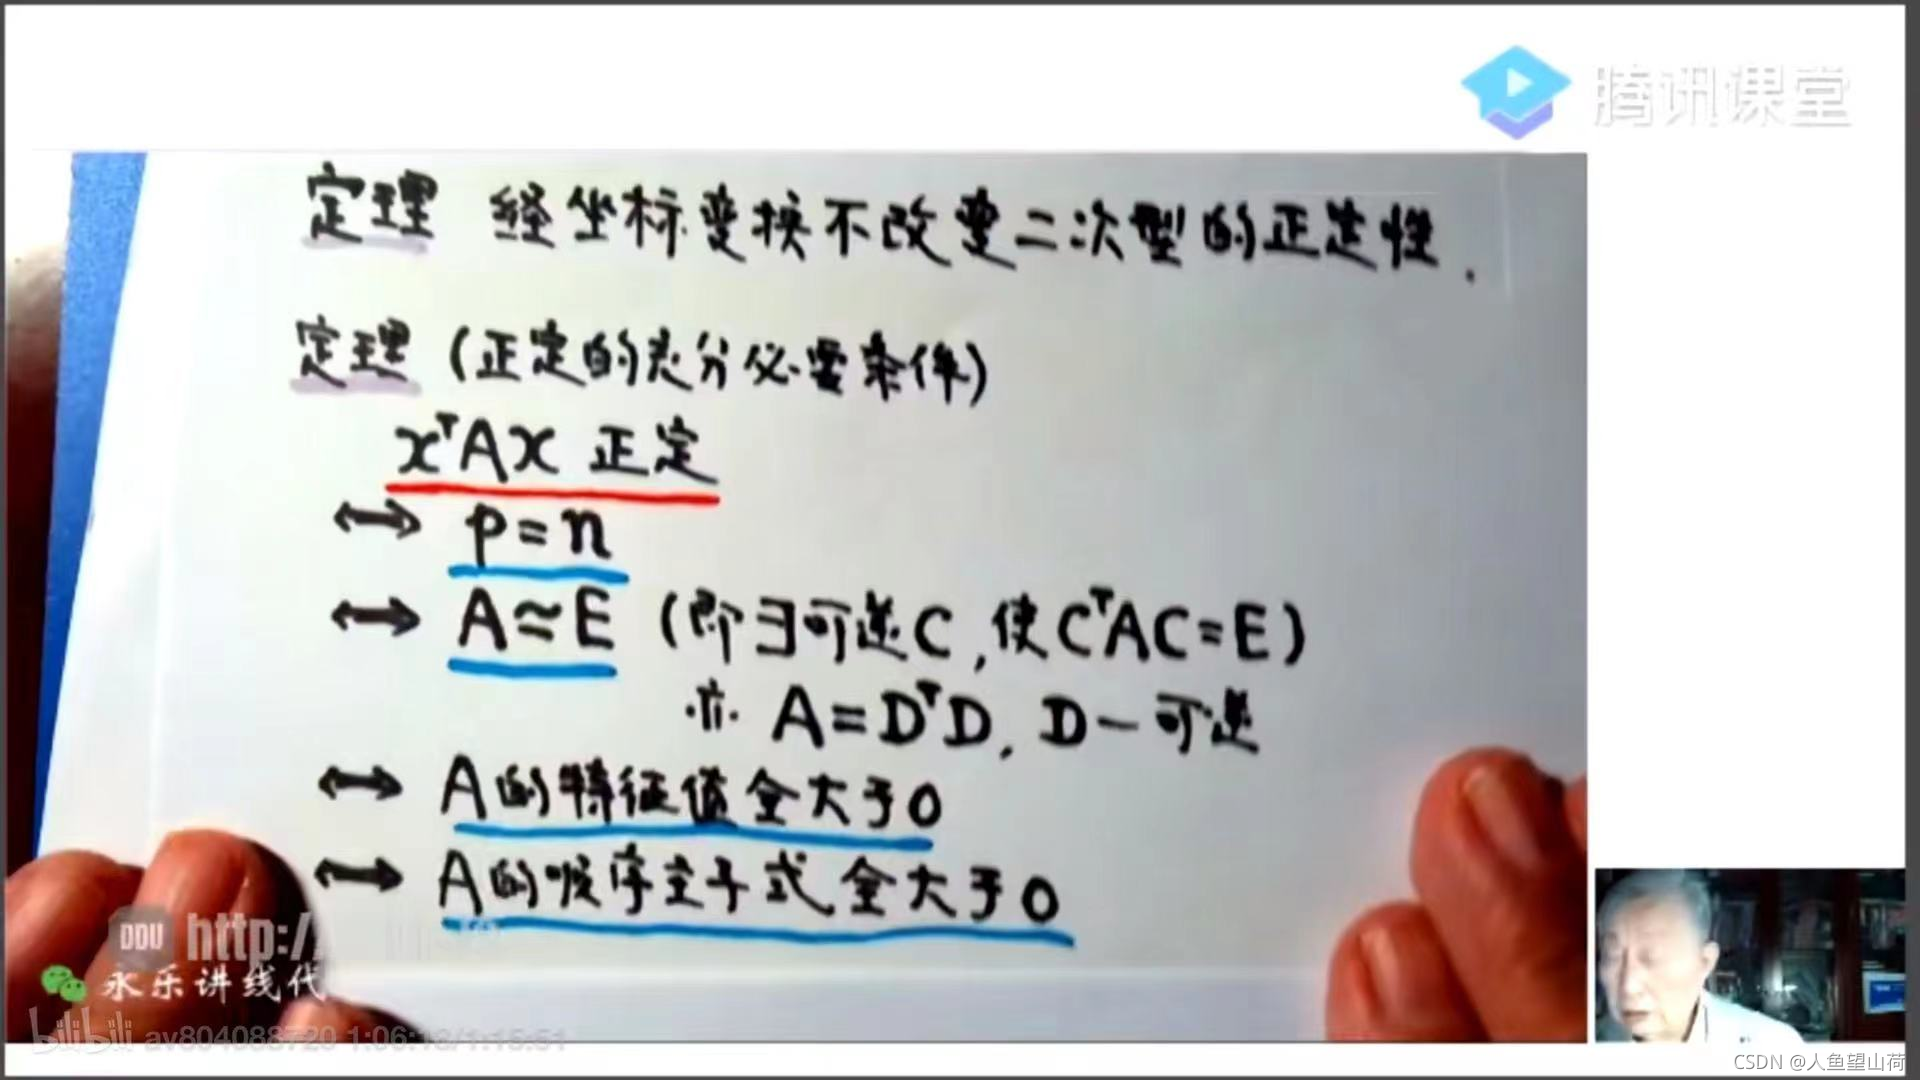 腾讯课堂
定理 经坐标变换不改变二次型的正定性.
定理 (正定的充分必要条件)
xᵀAx 正定
⟷ p=n
⟷ A≃E (即∃可逆C,使CᵀAC=E)
亦. A=DᵀD, D一可逆
⟷ A的特征值全大于0
⟷ A的顺序主子式全大于0
DDU http:/
永乐讲线代
bilibili av804088720 1:06:18/1:15:51
CSDN @人鱼望山荷